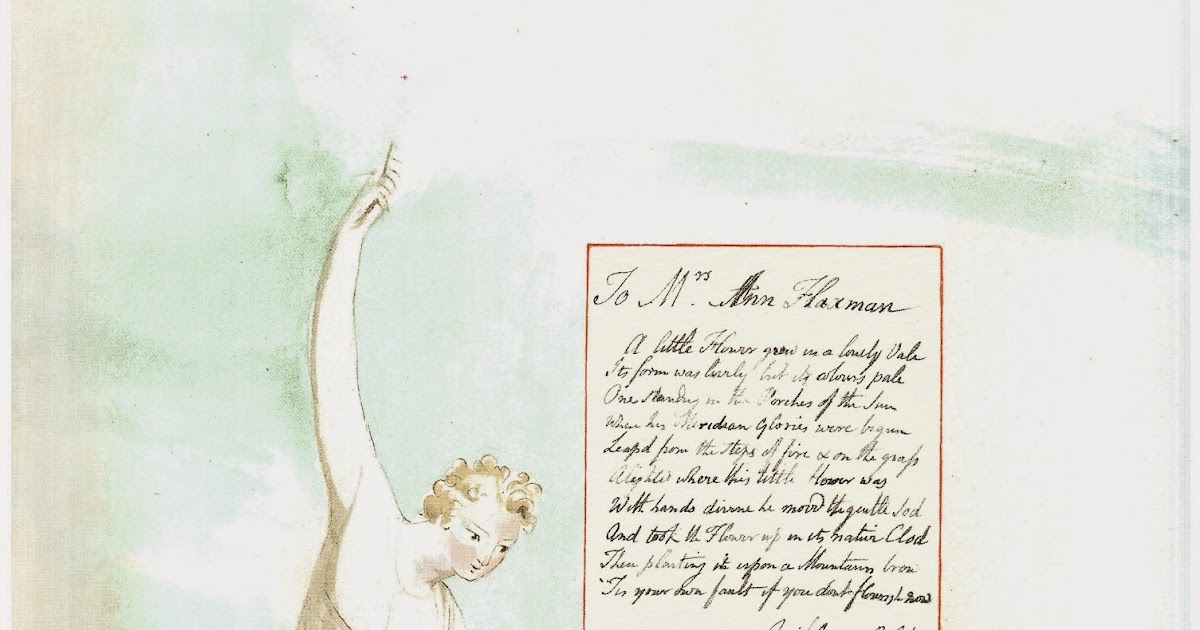 To Mrs. Ann Flaxman
A little Flower grew in a lonely Vale
Its form was lovely but its colours pale
One standing in the Porches of the Sun
When his Meridian Glories were begun
Leapd from the steps of fire & on the grass
Alighted where this little flower was
With hands divine he movd the gentle Sod
And took the Flower up in its native Clod
Then planting it upon a Mountains brow
'Tis your own fault if you dont flourish now